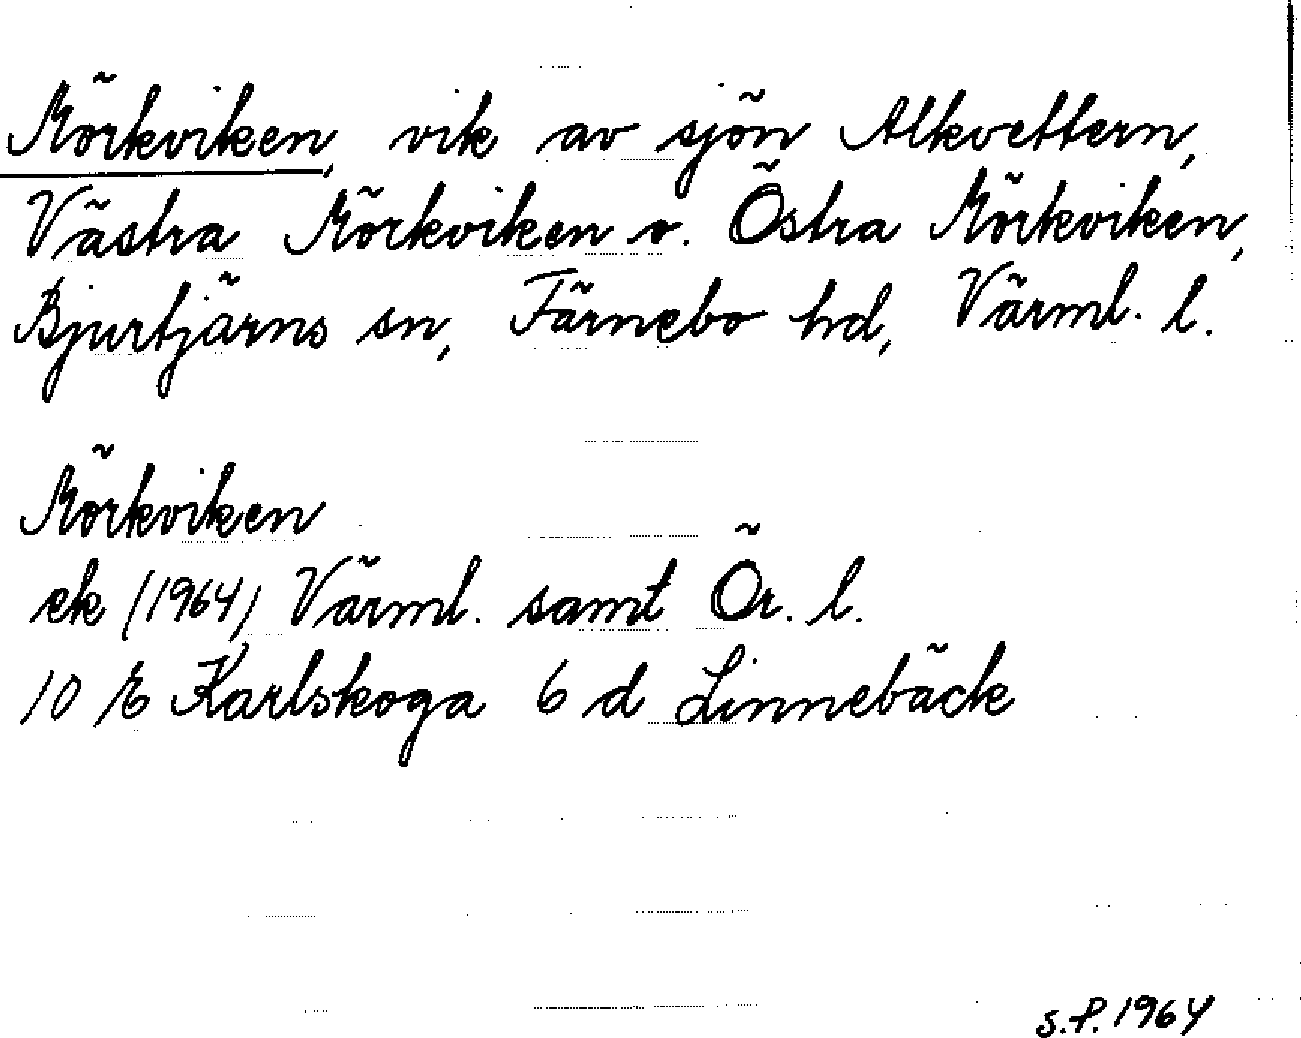 Mörkviken, vik av sjön Alkvettern,
Västra Mörkviken o. Östra Mörkviken,
Bjurtjärns sn, Färnebo hd, Värml. l.
Mörkviken
ek (1964) Värml. samt Ör. l.
10 E Karlskoga 6 d Linnebäck
S.P. 1964